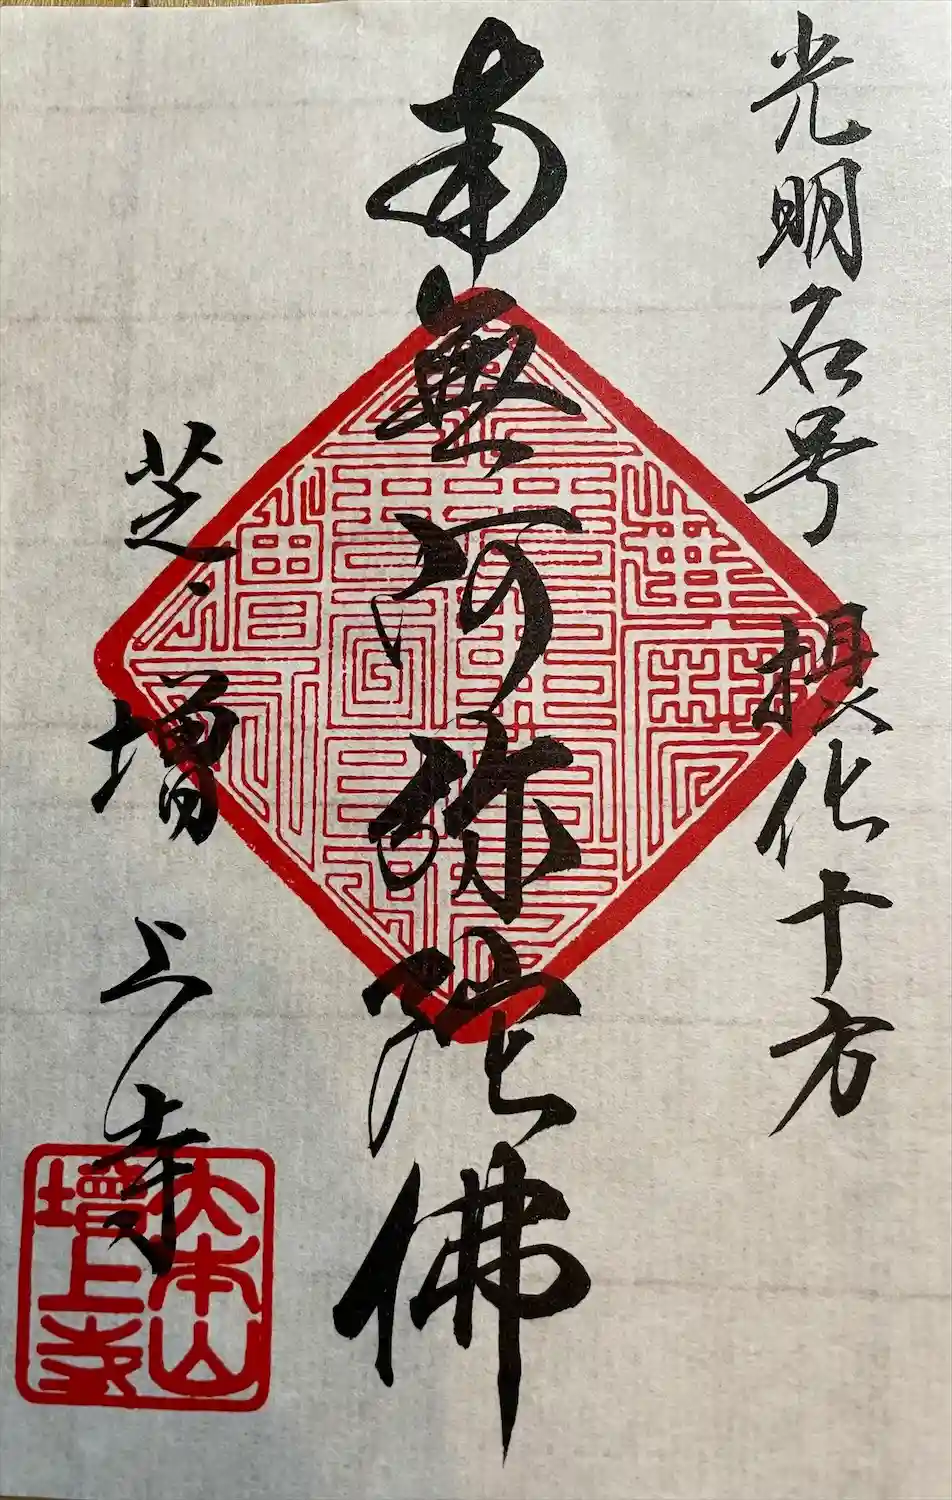 光明名号 摂化十方
南無阿弥陀佛
芝 増上寺
大本山
增上寺